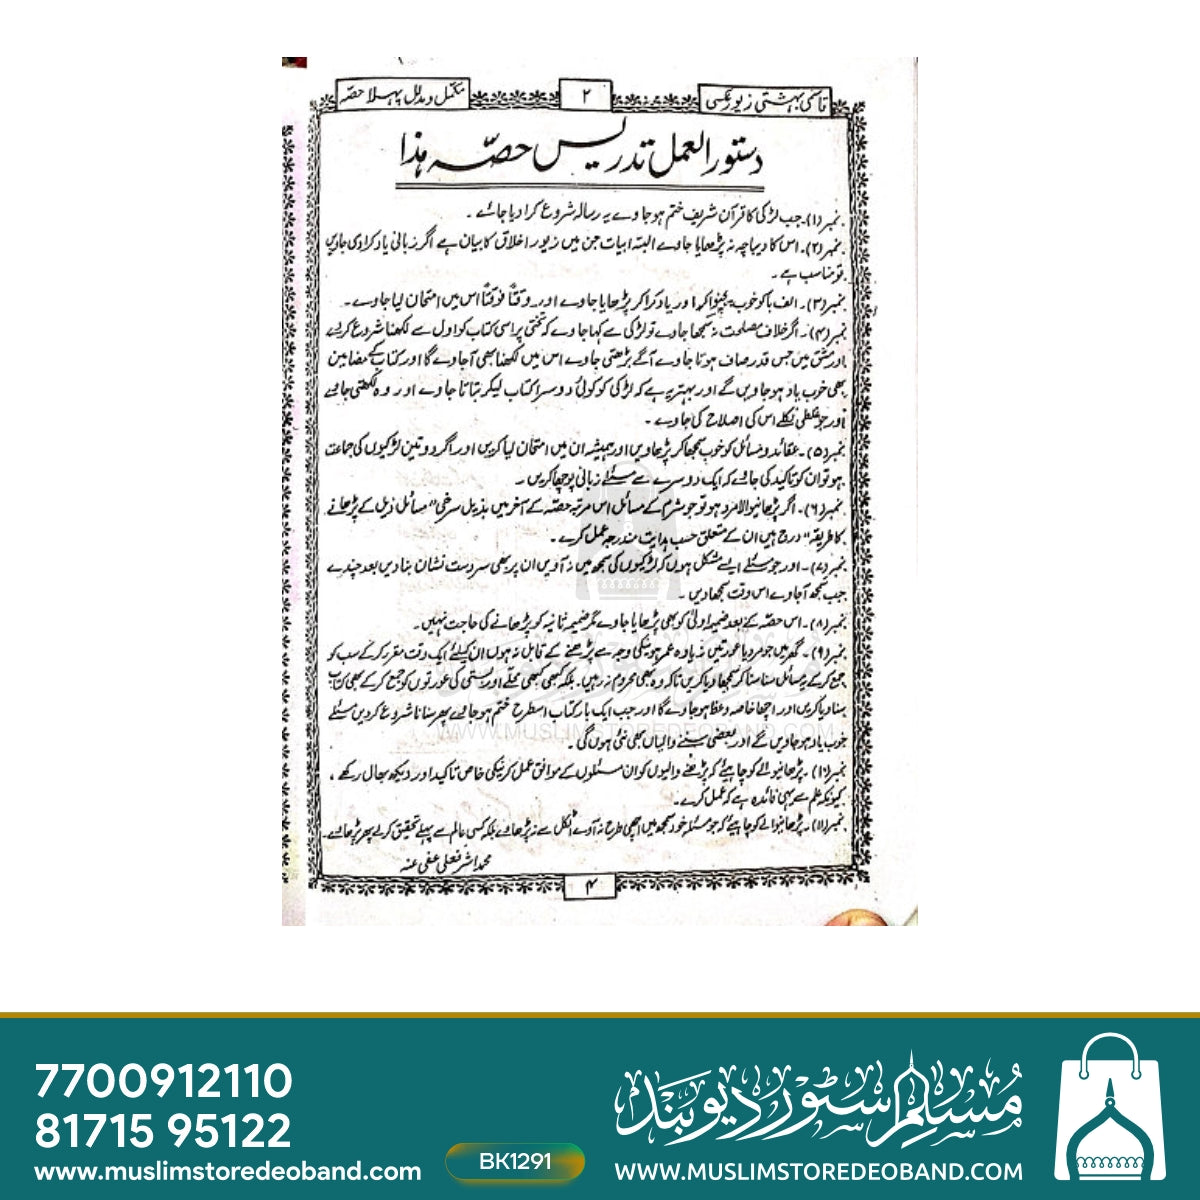 قاسمی بہشتی زیور عکسی
۲
مکمل و مدلل پہلا حصّہ
دستور العمل تدریس حصّہ ہذا
نمبر(۱)۔ جب لڑکی کا قرآن شریف ختم ہو جاوے یہ رسالہ شروع کرا دیا جائے۔
نمبر(۲)۔ اس کا دیباچہ نہ پڑھایا جاوے البتہ ابیات جن میں زیور اخلاق کا بیان ہے اگر زبانی یاد کرا دی جاویں
تو مناسب ہے۔
نمبر(۳)۔ الف با کو خوب پہچنوا کر اور یاد کرا کر پڑھایا جاوے اور وقتاً فوقتاً اس میں امتحان لیا جاوے۔
نمبر(۴)۔ اگر خلاف مصلحت نہ سمجھا جاوے تو لڑکی سے کہا جاوے کہ تختی پر اسی کتاب کو اول سے لکھنا شروع کرے
اور مشق میں جس قدر صاف ہوتا جاوے آگے بڑھتی جاوے اس میں لکھنا بھی آجاوے گا اور کتاب کے مضامین
بھی خوب یاد ہو جاویں گے اور بہتر یہ ہے کہ لڑکی کو کوئی دوسرا کتاب لیکر بتاتا جاوے اور وہ لکھتی جائے
اور جو غلطی نکلے اس کی اصلاح کی جاوے۔
نمبر(۵)۔ عقائد و مسائل کو خوب سمجھا کر پڑھاویں اور ہمیشہ ان میں امتحان لیا کریں اور اگر دو تین لڑکیوں کی جماعت
ہو تو ان کو تاکید کی جاوے کہ ایک دوسرے سے مسئلے زبانی پوچھا کریں۔
نمبر(۶)۔ اگر پڑھانیوالا مرد ہو تو جو شرم کے مسائل اس مرتبہ حصّہ کے آخر میں بذیل سرخی "مسائل ذیل کے پڑھانے
کا طریقہ" درج ہیں ان کے متعلق حسب ہدایت مندرجہ عمل کرے۔
نمبر(۷)۔ اور جو مسئلے ایسے مشکل ہوں کہ لڑکیوں کی سمجھ میں نہ آویں ان پر بھی سردست نشان بنا دیں بعد چندے
جب سمجھ آجاوے اس وقت سمجھا دیں۔
نمبر(۸)۔ اس حصّہ کے بعد ضمیمہ اولیٰ کو بھی پڑھایا جاوے مگر ضمیمہ ثانیہ کو پڑھانے کی حاجت نہیں۔
نمبر(۹)۔ گھر میں جو مرد یا عورتیں زیادہ عمر ہونیکی وجہ سے پڑھنے کے قابل نہ ہوں ان کیلئے ایک وقت مقرر کر کے سب کو
جمع کر کے یہ مسائل سنا سنا کر سمجھا دیا کریں تاکہ وہ بھی محروم نہ رہیں۔ بلکہ کبھی کبھی محلّے اور بستی کی عورتوں کو جمع کر کے بھی کتاب
سنا دیا کریں اور اچھا خاصہ وعظ ہو جاوے گا اور جب ایک بار کتاب اسطرح ختم ہو جاوے پھر سنانا شروع کر دیں مسئلے
خوب یاد ہو جاویں گے اور بعضی سننے والیاں بھی نئی ہوں گی۔
نمبر(۱۰)۔ پڑھانیوالے کو چاہیئے کہ پڑھنے والیوں کو ان مسئلوں کے موافق عمل کرنیکی خاص تاکید اور دیکھ بھال رکھے،
کیونکہ علم سے یہی فائدہ ہے کہ عمل کرے۔
نمبر(۱۱)۔ پڑھانیوالے کو چاہیئے کہ جو مسئلہ خود سمجھ میں اچھی طرح نہ آوے اٹکل سے نہ پڑھاوے بلکہ کسی عالم سے پہلے تحقیق کرلے پھر پڑھاوے۔
محمد اشرفعلی عفی عنہ
۴
WWW.MUSLIMSTOREDEOBAND.COM
7700912110
81715 95122
www.muslimstoredeoband.com
BK1291
مسلم سٹور دیوبند
WWW.MUSLIMSTOREDEOBAND.COM